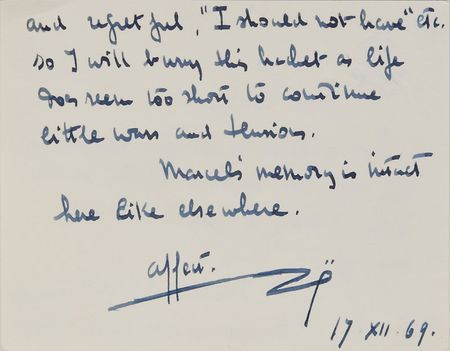 and regretful, "I should not have" etc.
so I will bury this hachet as life
does seem too short to continue
little wars and tensions.
Marcel's memory is intact
here like elsewhere.
affect.
17. XII. 69.